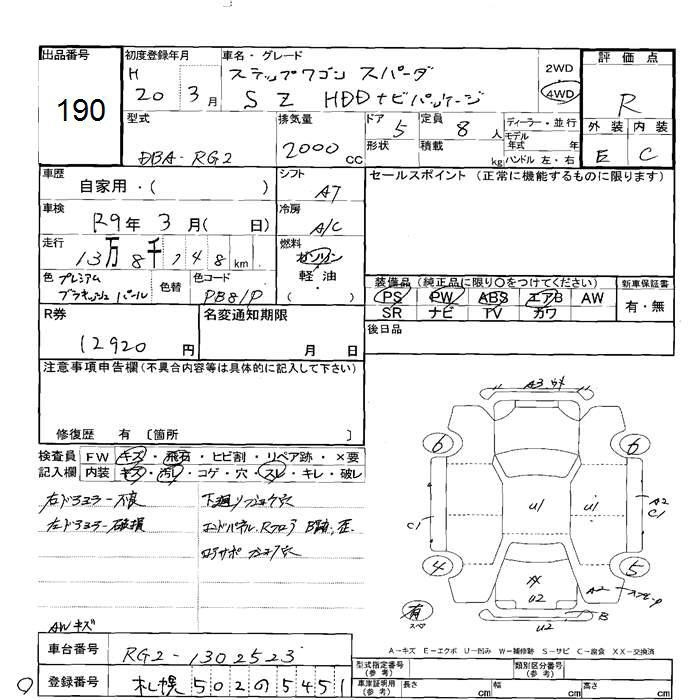 出品番号 初度登録年月 車名・グレード 評価点
190
H 20 3月 ステップワゴン スパーダ 2WD
S Z HDDナビパッケージ 4WD R
型式 排気量 ドア 5 定員 8人 ディーラー・並行 外装 内装
DBA-RG2 2000cc 形状 積載 kg モデル年式 年 E C
ハンドル 左・右
車歴 シフト セールスポイント (正常に機能するものに限ります)
自家用・( ) AT
車検 冷房
R9年 3月( 日) A/C
走行 燃料
13万8千748km ガソリン
軽・油
( )
色 プレミアム 色替 色コード 装備品 (純正品に限り○をつけてください) 新車保証書
ブラキッシュパール PB81P PS PW ABS エアB AW 有・無
SR ナビ TV カワ
R券 名変通知期限 後日品
12920円 月 日
注意事項申告欄(不具合内容等は具体的に記入して下さい)
修復歴 有 〔箇所 〕
検査員 FW キズ・飛石・ヒビ割・リペア跡・×要
記入欄 内装 キズ・汚れ・コゲ・穴・スレ・キレ・破レ
右ドアミラー不良
左ドアミラー破損
エンドパネル、Rフロア
A3
6 6
U1 U1
A2
C1 C1
4 5
U2 A2
B
U2
有
スペア
AWキズ
A-キズ E-エクボ U-凹み W-補修跡 S-サビ C-腐食 XX-交換済
車台番号 RG2-1302523 型式指定番号(参考) 類別区分番号(参考)
登録番号 札幌 502 の 5451 車庫証明用(参考) 長さ cm 幅 cm 高さ cm